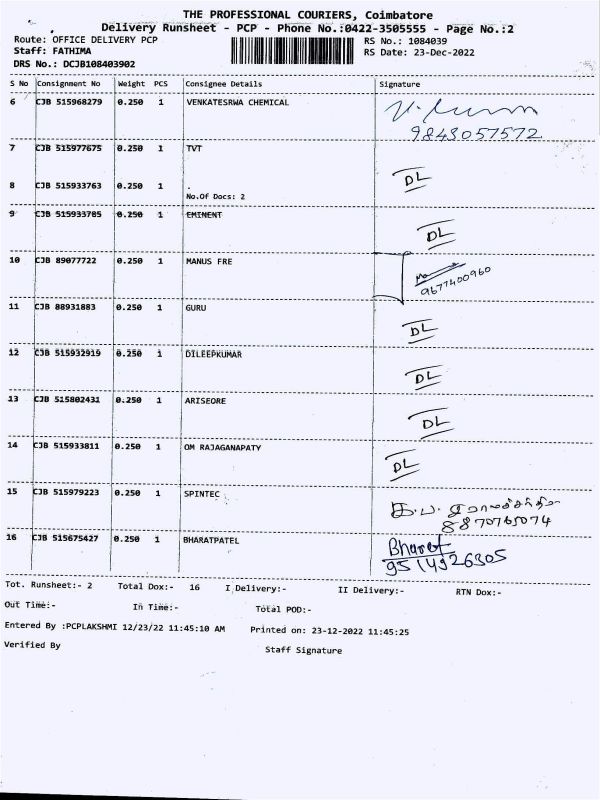 THE PROFESSIONAL COURIERS, Coimbatore
Delivery Runsheet - PCP - Phone No.:0422-3505555 - Page No.:2
Route: OFFICE DELIVERY PCP RS No.: 1084039
Staff: FATHIMA RS Date: 23-Dec-2022
DRS No.: DCJB108403902
S No Consignment No Weight PCS Consignee Details Signature
6 CJB 515968279 0.250 1 VENKATESRWA CHEMICAL
9843057572
7 CJB 515977675 0.250 1 TVT
8 CJB 515933763 0.250 1 . DL
No.Of Docs: 2
9 CJB 515933785 0.250 1 EMINENT
DL
10 CJB 89077722 0.250 1 MANUS FRE
9677400960
11 CJB 88931883 0.250 1 GURU
DL
12 CJB 515932919 0.250 1 DILEEPKUMAR
DL
13 CJB 515802431 0.250 1 ARISEORE
DL
14 CJB 515933811 0.250 1 OM RAJAGANAPATY
DL
15 CJB 515979223 0.250 1 SPINTEC
8870765074
16 CJB 515675427 0.250 1 BHARATPATEL Bharat
9514926305
Tot. Runsheet:- 2 Total Dox:- 16 I Delivery:- II Delivery:- RTN Dox:-
Out Time:- In Time:- Total POD:-
Entered By :PCPLAKSHMI 12/23/22 11:45:10 AM Printed on: 23-12-2022 11:45:25
Verified By Staff Signature